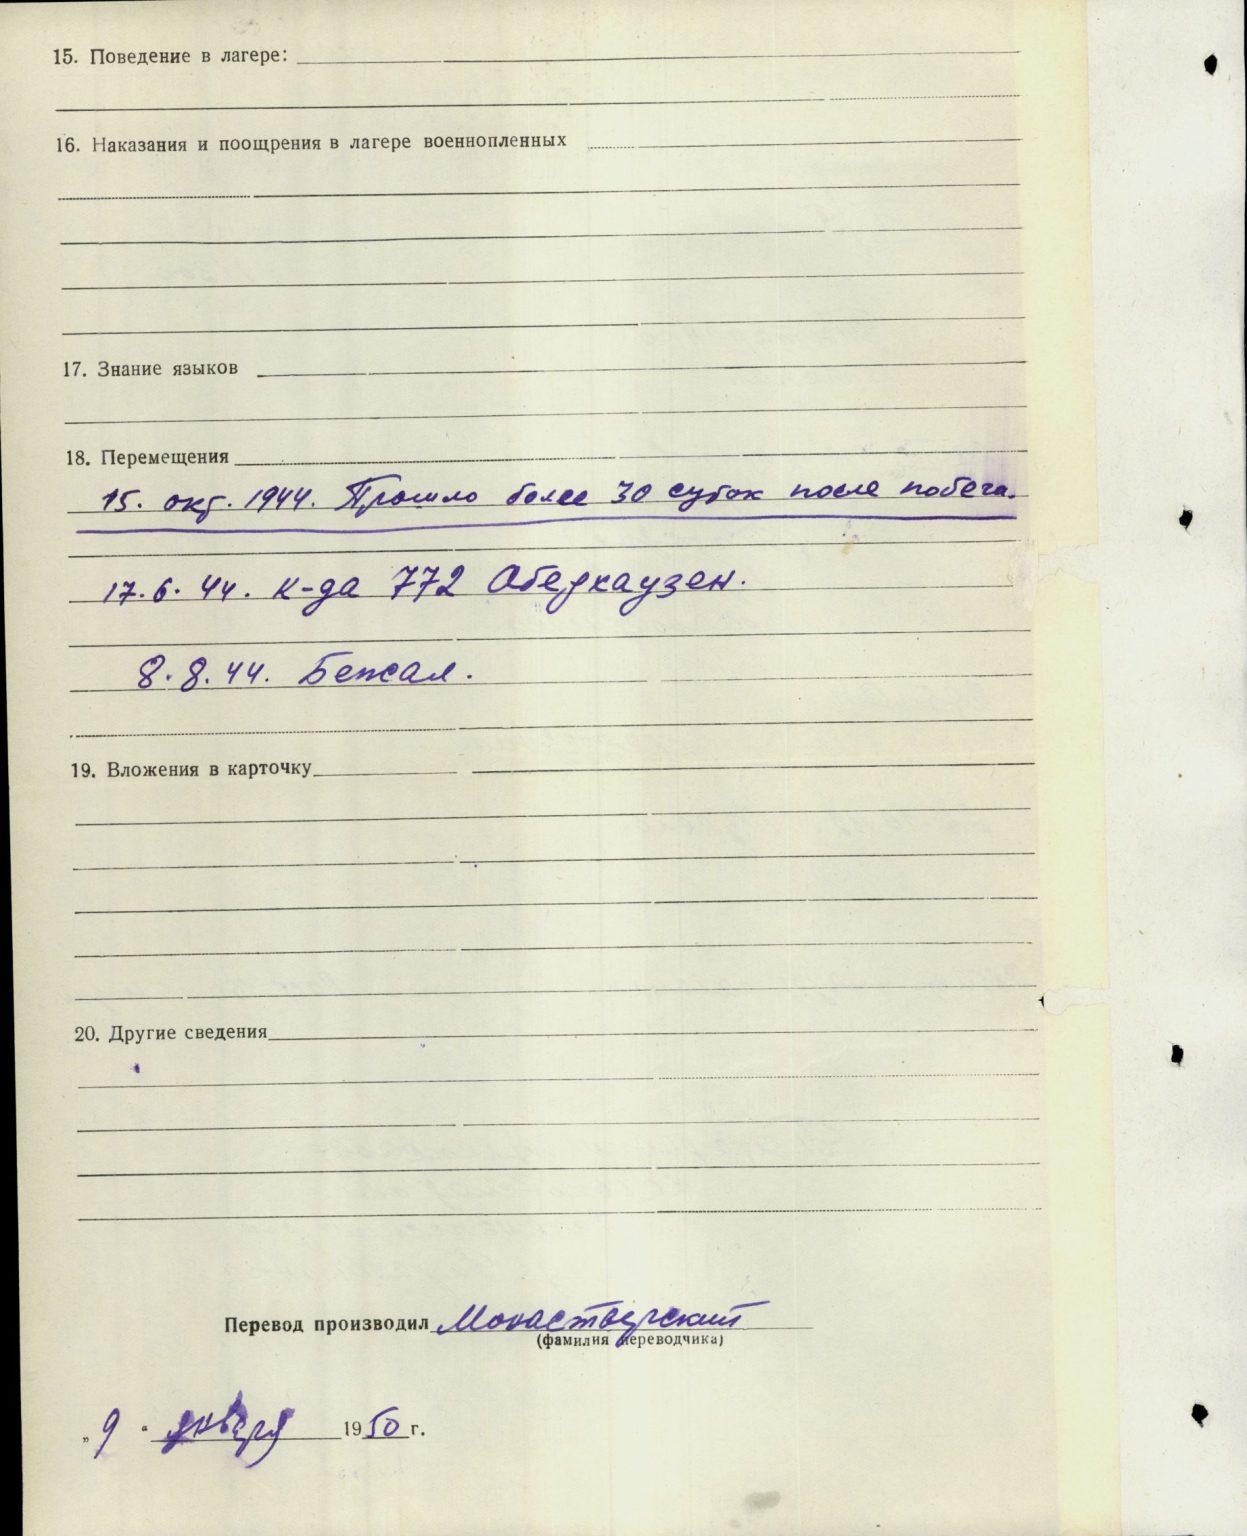 15. Поведение в лагере:
16. Наказания и поощрения в лагере военнопленных
17. Знание языков
18. Перемещения
15. окт. 1944. Прошло более 30 суток после побега.
17. 6. 44. к-да 772 Оберхаузен.
8. 8. 44. Бежал.
19. Вложения в карточку
20. Другие сведения
Перевод производил Монастырский
(фамилия переводчика)
„ 9 “ января 1950 г.